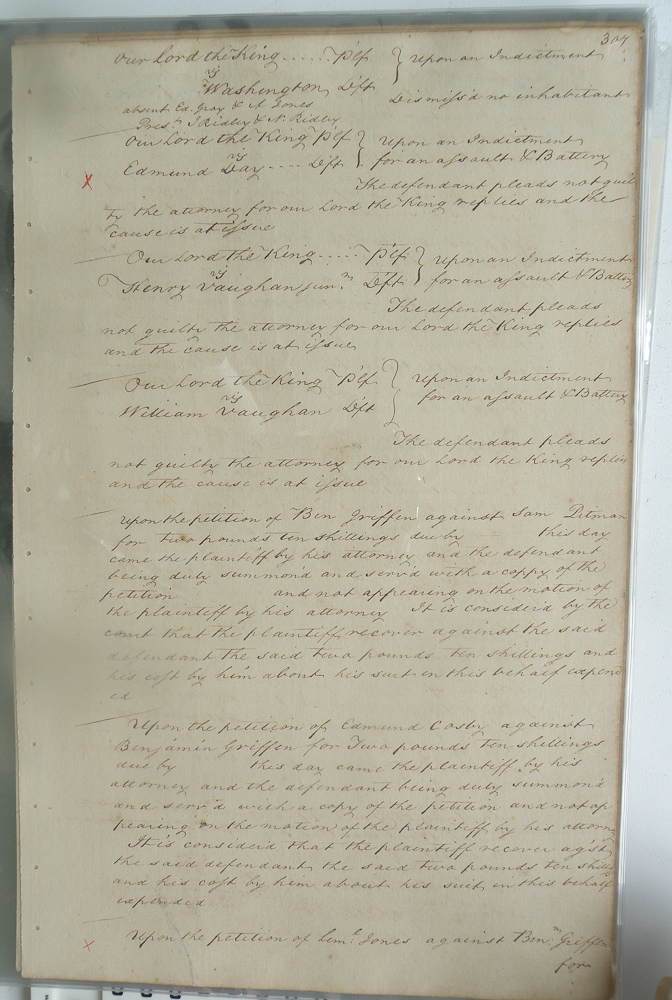 307
Our Lord the King ...... Plf } upon an Indictment
vs
Washington Dft Dismiss'd no inhabitant
absent Ed. Gray & A Jones
Prest. J Ridley & N. Ridley
Our Lord the King Plf } upon an Indictment
vs
Edmund Day .... Dft } for an assault & Battery
The defendant pleads not guil
ty the attorney for our Lord the King replies and the
cause is at issue
Our Lord the King ..... Plf } upon an Indictment
vs
Henry Vaughan junr. Dft } for an assault & Battery
The defendant pleads
not guilty the attorney for our Lord the King replies
and the cause is at issue
Our Lord the King Plf } upon an Indictment
vs
William Vaughan Dft } for an assault & Battery
The defendant pleads
not guilty the attorney for our Lord the King replies
and the cause is at issue
Upon the petition of Ben Griffen against Sam Pitman
for two pounds ten shillings due by this day
came the plaintiff by his attorney and the defendant
being duly summon'd and serv'd with a coppy of the
petition and not appearing on the motion of
the plaintiff by his attorney It is considerd by the
court that the plaintiff recover against the said
defendant the said two pounds ten shillings and
his cost by him about his suit in this behalf expend
ed
Upon the petition of Edmund Cosby against
Benjamin Griffen for Two pounds ten shillings
due by this day came the plaintiff by his
attorney and the defendant being duly summon'd
and serv'd with a copy of the petition and not ap
pearing on the motion of the plaintiff by his attorny
It is considerd that the plaintiff recover agst
the said defendant the said two pounds ten shills
and his cost by him about his suit in this behalf
expended
Upon the petition of Jones against Benn. Griffen
for